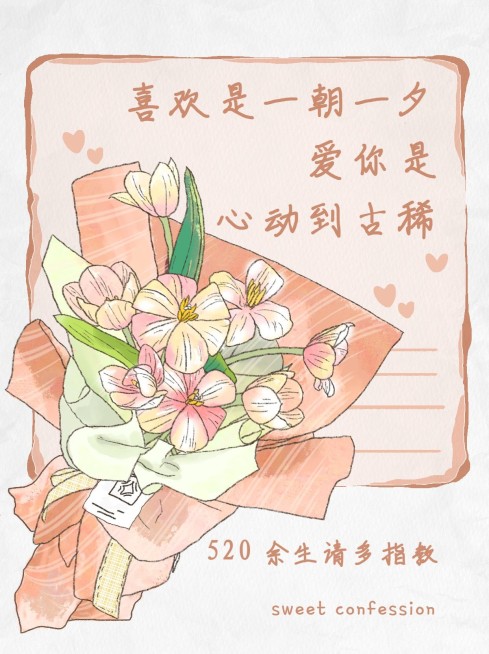 喜欢是一朝一夕
爱你是
心动到古稀
520 余生请多指教
sweet confession